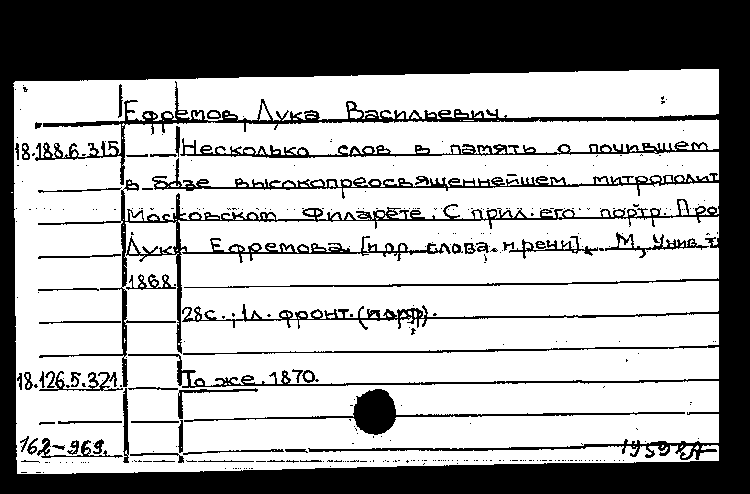 Ефремов, Лука Васильевич.
18.188.6.315 Несколько слов в память о почившем
в бозе высокопреосвященнейшем митрополит
Московском Филарете. С прил. его портр. Про
Луки Ефремова. [и др. слова и речи]. М, Унив. т
1868.
28с.; 1л. фронт. (портр).
18.126.5.321. То же. 1870.
162-969.